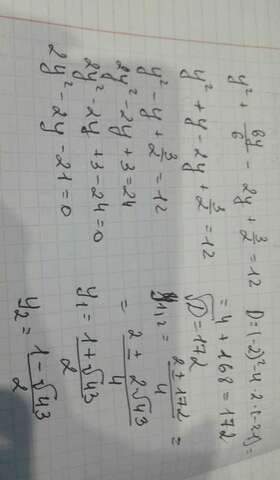 y² + 6y/6 - 2y + 3/2 = 12
y² + y - 2y + 3/2 = 12
y² - y + 3/2 = 12
2y² - 2y + 3 = 24
2y² - 2y + 3 - 24 = 0
2y² - 2y - 21 = 0
D = (-2)² - 4 · 2 · (-21) =
= 4 + 168 = 172
√D = 172
y1,2 = 2 ± 172 / 4 =
= 2 ± 2√43 / 4
y1 = 1 + √43 / 2
y2 = 1 - √43 / 2